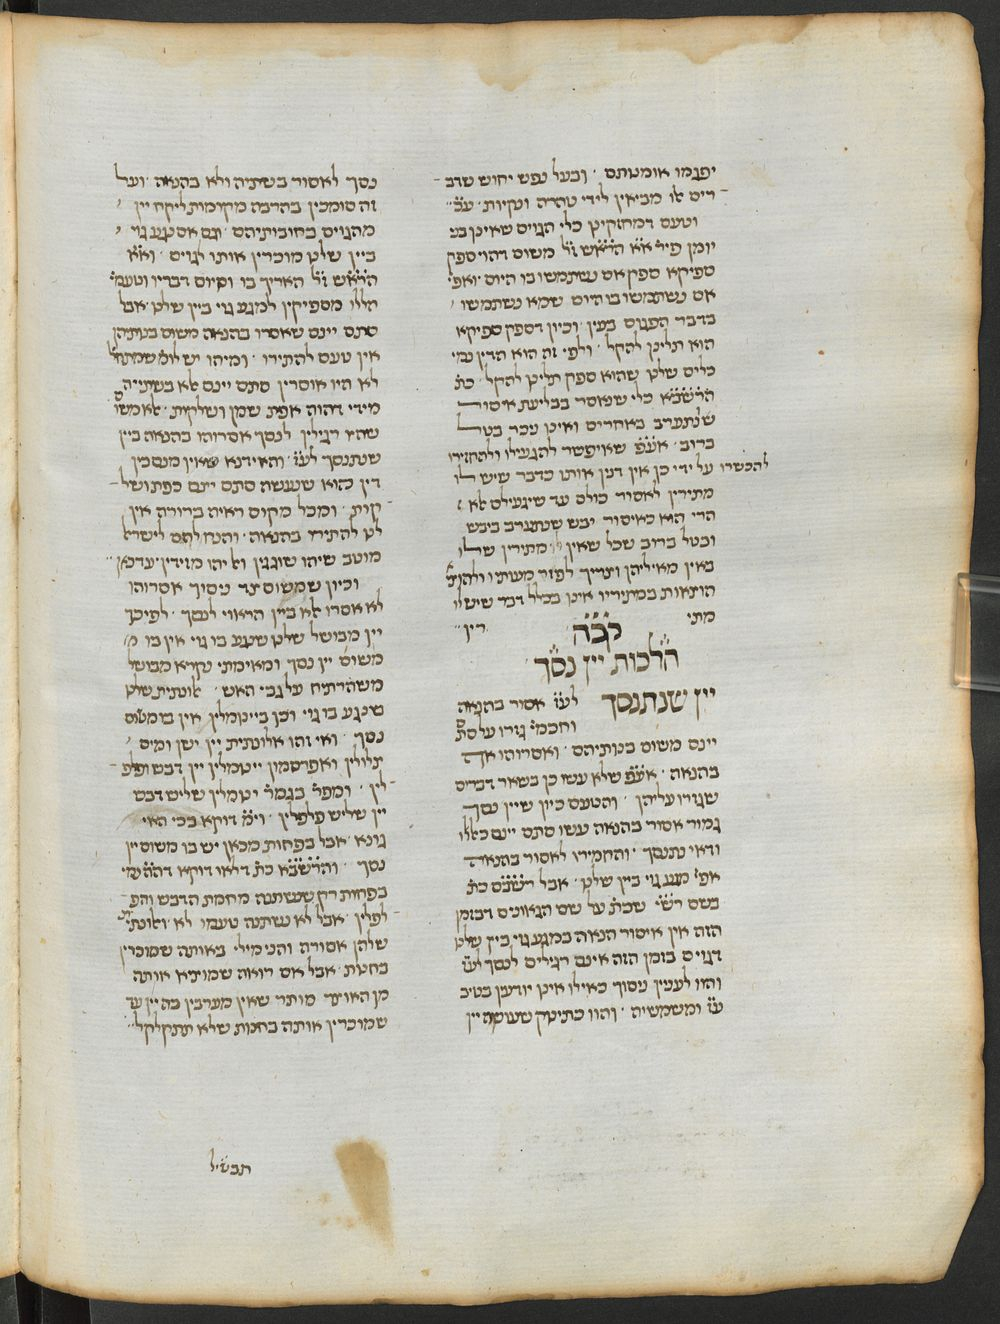 יפגמו אומנותם · ובעל נפש יחוש שדב
ריםֹ אלו מביאין לידי טהרה ונקיות · עכ֗
וטעם דמחזקינן כלי הגוים שאינן בני
יומן פי׳ א״א הרא״ש ז״ל משום דהוי ספק
ספיקא ספק אם נשתמשו בו היום · ואפי׳
אם נשתמשו בו היום שמא נשתמשו
בדבר הפוגם בעין · וכיון דספק ספיקא
הוא תלינן להקל · ולפי זה הוא הדין נמי
כלים שלנו שהוא ספק תלינן להקל · כת֗
הרשב״א כלי שנאסר בבליעת איסור
שנתערב באחרים ואינו ניכר בטל
ברוב · אע״פ שאיפשר להגעילו ולהחזירו
להכשרו על ידי כן אין דנין אותו כדבר שיש לו
מתירין לאסור כולם עד שיגעילם אלא
הרי הוא כאיסור יבש שנתערב ביבש
ובטל ברוב שכל שאין לו מתירין שלו
באין מאיליהן וצריך לפזר מעותיו ולהוצי׳
הוצאות במתיריו אינן בכלל דבר שיש לו
מתי רין
קכ״ה
הלכות יין נסך
יין שנתנסך לע״ז אסור בהנאה
וחכמי׳ גזרו על סתם
יינם משום בנותיהם · ואסרוהו אף
בהנאה · אע״פ שלא עשו כן בשאר דברים
שגזרו עליהן · והטעם כיון שיין נסך
גמור אסור בהנאה עשו סתם יינם כאלו
ודאי נתנסך · והחמירו לאסור בהנאה
אפי׳ מגע גוי ביין שלנו · אבל רשב״ם כת֗
בשם רש״י שכת֗ על שם הגאונים דבזמן
הזה אין איסור הנאה במגע גוי ביין שלנו
דגוים בזמן הזה אינם רגילים לנסך לע״ז
והוו לענין ניסוך כאילו אינן יודעין בטיב
ע״ז ומשמשיה · והוו כתינוק שעושה יין
נסך לאסור בשתיה ולא בהנאה · ועל
זה סומכין בהרבה מקומות ליקח יין
מהגוים בחובותיהם · וגם אם נגע גוי
ביין שלנו מוכרין אותו לגוים · וא״א
הרא״ש ז״ל האריך בו וסיום דבריו וטעמי׳
הללו מספיקין למגע גוי ביין שלנו · אבל
סתם יינם שאסרו בהנאה משום בנותיהן
אין טעם להתירו · ומיהו יש לומ׳ שמתחל׳
לא היו אוסרין סתם יינם אלא בשתייה
מידי דהוה אפת שמן ושלקות · אלא משום
שהיו רגילין לנסך אסרוהו בהנאה כיין
שנתנסך לע״ז · והאידנא שאין מנסכין
דין הוא שנעשה סתם יינם כפת ושל
קות · ומכל מקום ראיה ברורה אין
לנו להתירו בהנאה · והנח להם לישראל
מוטב שיהו שוגגין ואל יהו מזידין · עד כאן
וכיון שמשום צד ניסוך אסרוהו
לא אסרו אלא ביין הראוי לנסך · לפיכך
יין מבושל שלנו שנגע בו גוי אין בו
משום יין נסך · ומאימתי נקרא מבושל
משהרתיח על גבי האש · אלונתית שלנו
שנגע בו גוי וכן ביינומלין אין בו משום
נסך · ואי זהו אלונתית יין ישן ומים
צלולין ואפרסמון יינומלין יין דבש ופלפ
לין · ומפר׳ בגמר׳ ינומלין שליש דבש
יין שליש פלפלין · וי״מ דוקא בכי האי
גונא · אבל בפחות מכאן יש בו משום יין
נסך · והרשב״א כת֗ דלאו דוקא דה״ה נמי
בפחות רק שנשתנה מחמת הדבש והפ
לפלין · אבל לא נשתנה טעמו לא · ואלונתי׳
שלהן אסורה והני מילי באותה שמוכרין
בחנות · אבל אם רואה שמוציא אותה
מן האוצר מותר שאין מערבין בה יין עד
שמוכרין אותה בחנות שלא תתקלקל
תבשיל